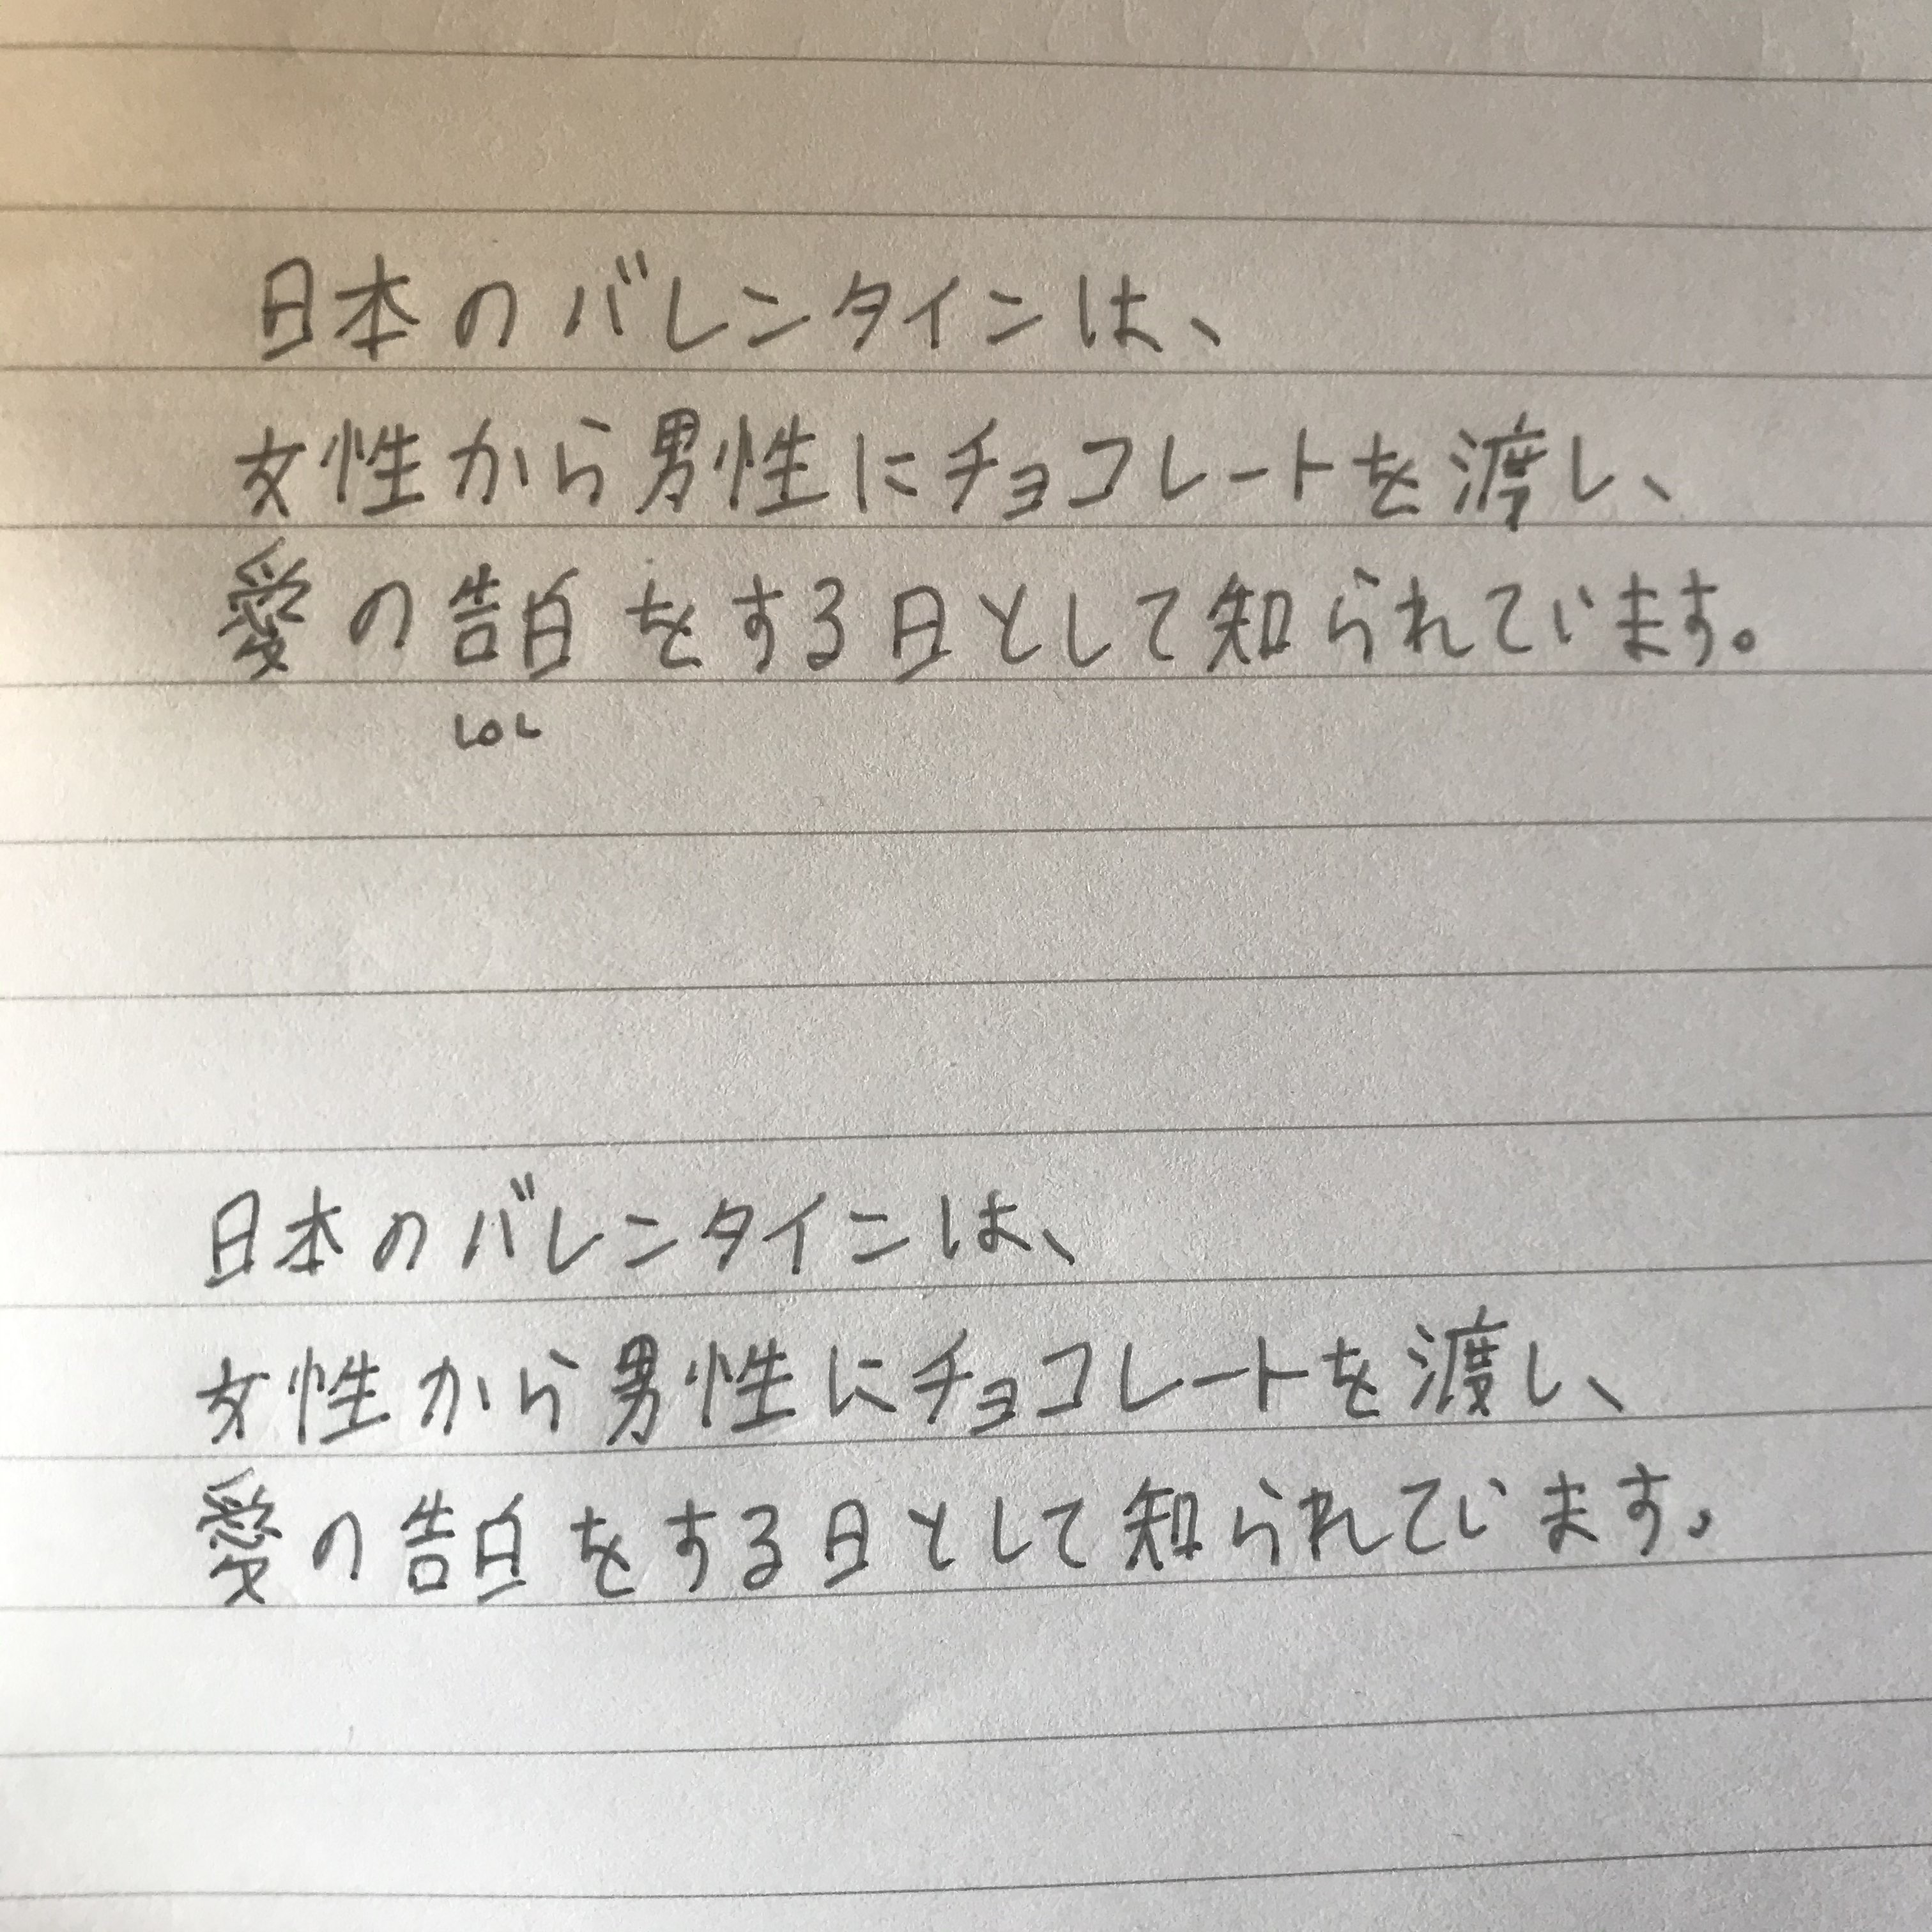 日本のバレンタインは、
女性から男性にチョコレートを渡し、
愛の告白をする日として知られています。
LOL
日本のバレンタインは、
女性から男性にチョコレートを渡し、
愛の告白をする日として知られています。